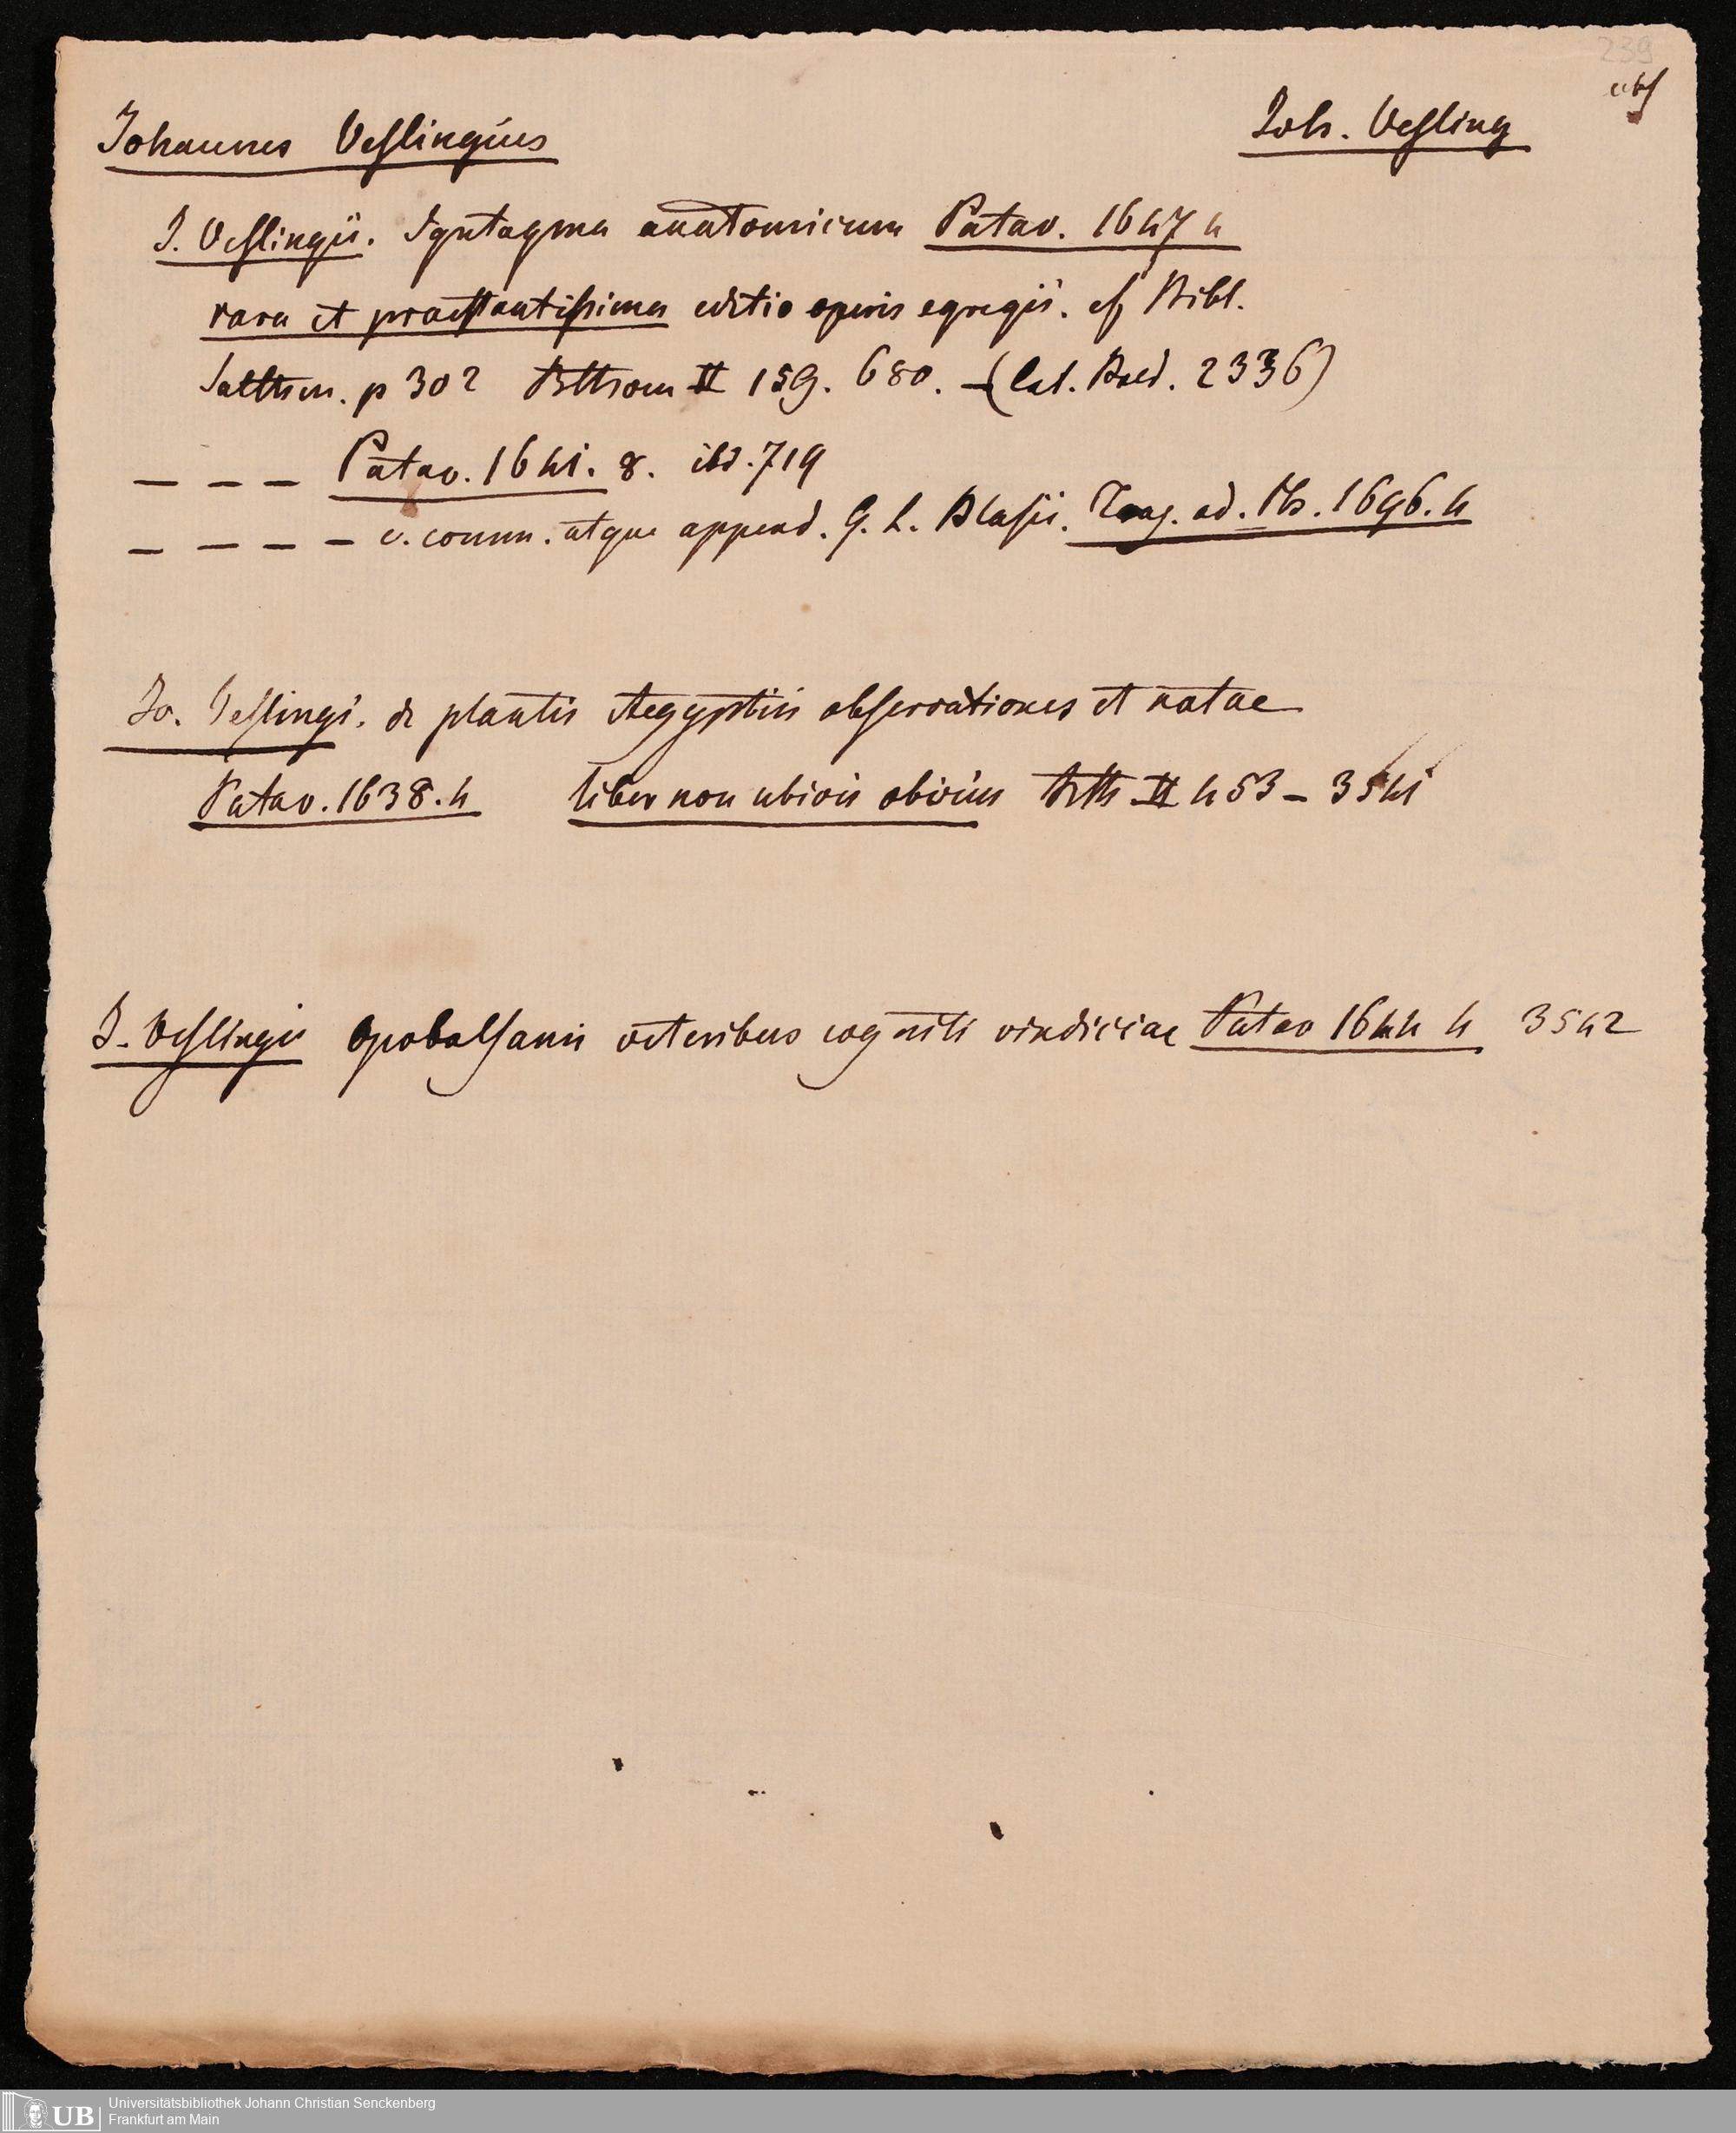 239
Johannes Veslingius Joh. Vesling
J. Veslingii. Syntagma anatomicum Patav. 1647 4
rara et praestantissima editio operis egregii. cf Bibl.
p 302 II 159. 680. – (Cat. Bald. 2336)
– – – Patav. 1641. 8. ibd. 719
– – – – c. comm. atque append. G. L. Blasii. Traj. ad. Rh. 1696. 4
Jo. Veslingi. de plantis Aegyptiis observationes et notae
Patav. 1638. 4 liber non ubivis obvius II 453 – 3541
J. Veslingii Opobalsami veteribus cogniti vindiciae Patav 1644 4 3542
UB Universitätsbibliothek Johann Christian Senckenberg
Frankfurt am Main